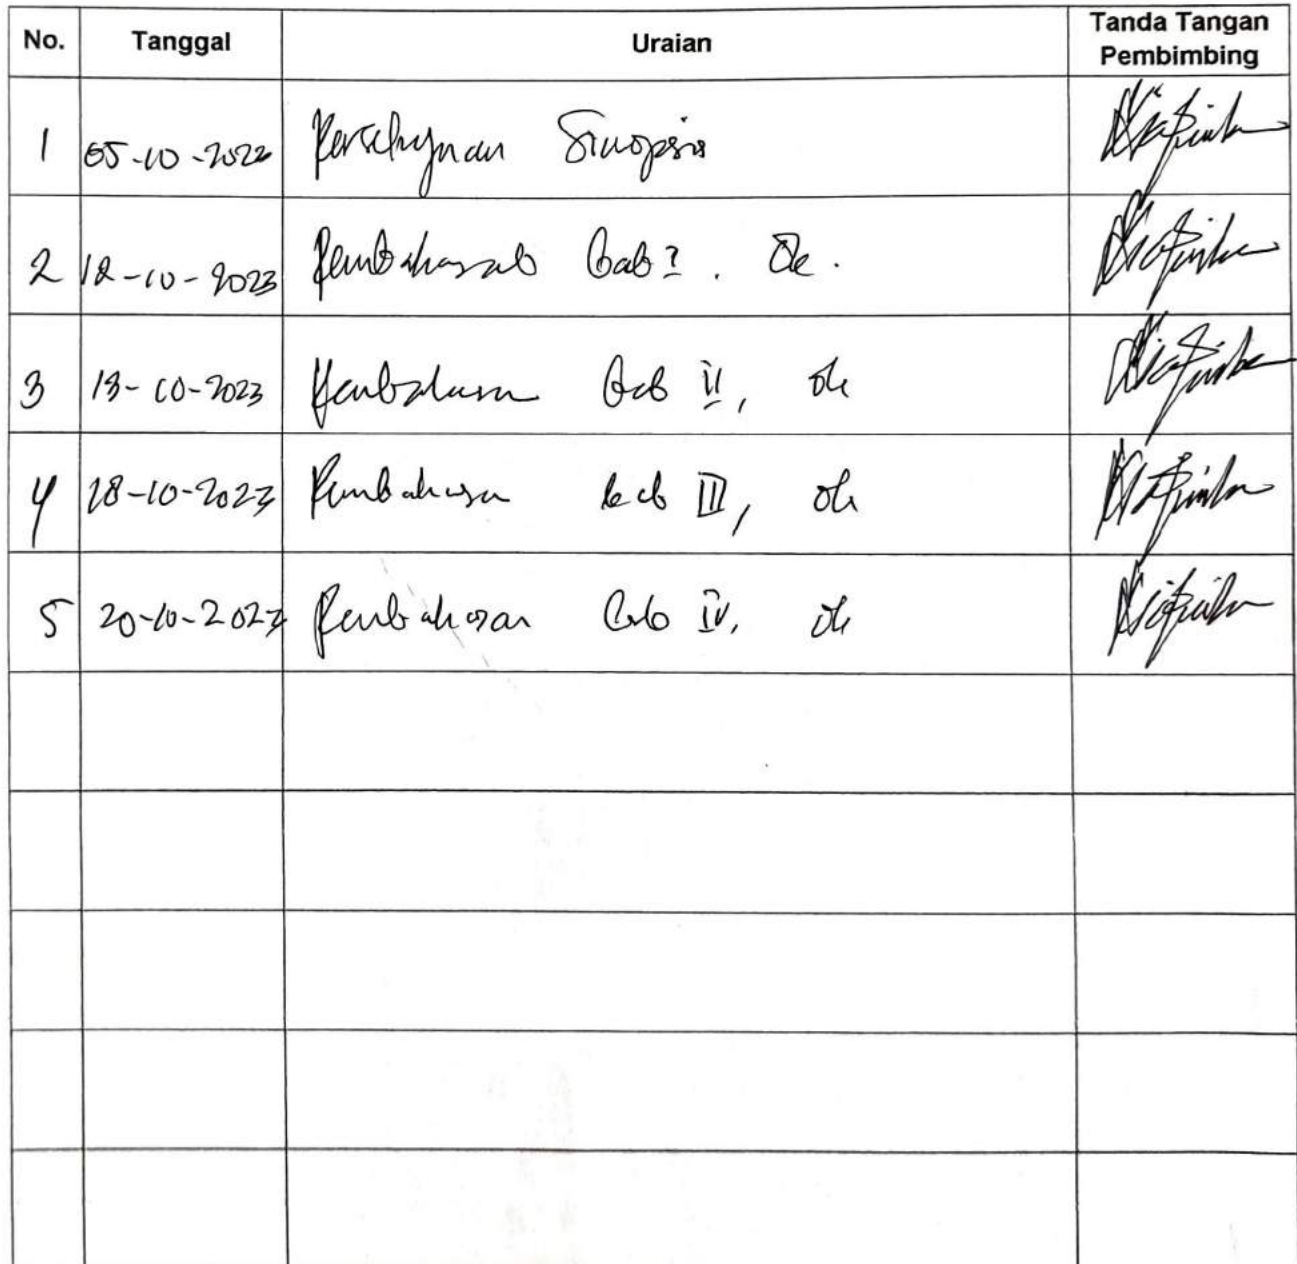 No. Tanggal Uraian Tanda Tangan Pembimbing
1 05-10-2022 Sinopsis
2 12-10-2023 Pembahasab Bab I. Oke.
3 13-10-2023 Pembahasan Bab II, ok
4 18-10-2023 Pembahasan bab III, ok
5 20-10-2023 Pembahasan Bab IV, ok